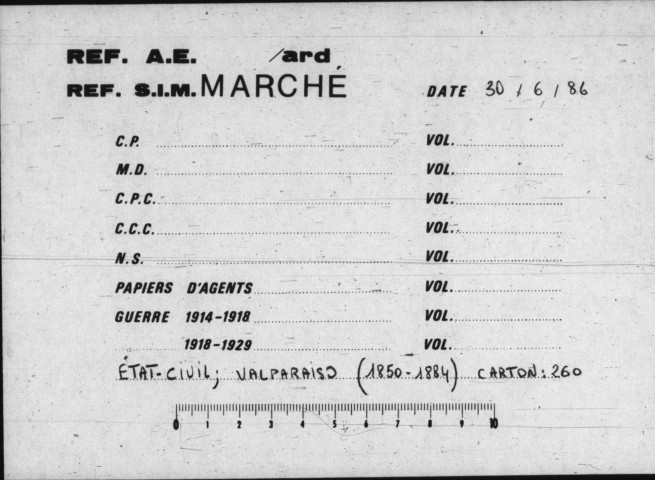 REF. A.E. /ard
REF. S.I.M. MARCHÉ DATE 30 / 6 / 86
C.P. VOL.
M.D. VOL.
C.P.C. VOL.
C.C.C. VOL.
N.S. VOL.
PAPIERS D'AGENTS VOL.
GUERRE 1914-1918 VOL.
1918-1929 VOL.
ÉTAT-CIVIL; VALPARAISO (1850-1884) CARTON: 260
0 1 2 3 4 5 6 7 8 9 10